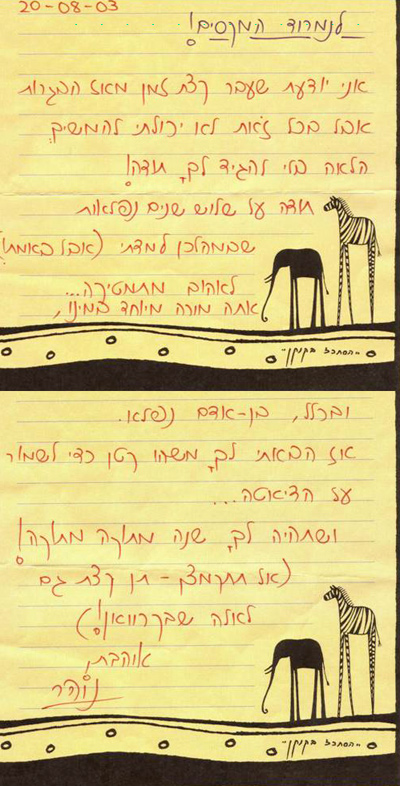 20-08-03
לנמרוד המקסים!
אני יודעת שעבר קצת זמן מאז הבגרות
אבל בכל זאת לא יכולתי להמשיך
הלאה בלי להגיד לך תודה!
תודה על שלוש שנים נפלאות
שבמהלכן למדתי (אבל באמת)
לאהוב מתמטיקה...
אתה מורה מיוחד במינו,
"הסתכל בקנקן"
ובכלל, בן-אדם נפלא.
אז הבאתי לך משהו קטן כדי לשמור
על הדיאטה...
ושתהיה לך שנה מתוקה מתוקה!
(אל תתקמצן - תן קצת גם
לאלה שבקרוואן!)
אוהבת,
נוהר
"הסתכל בקנקן"